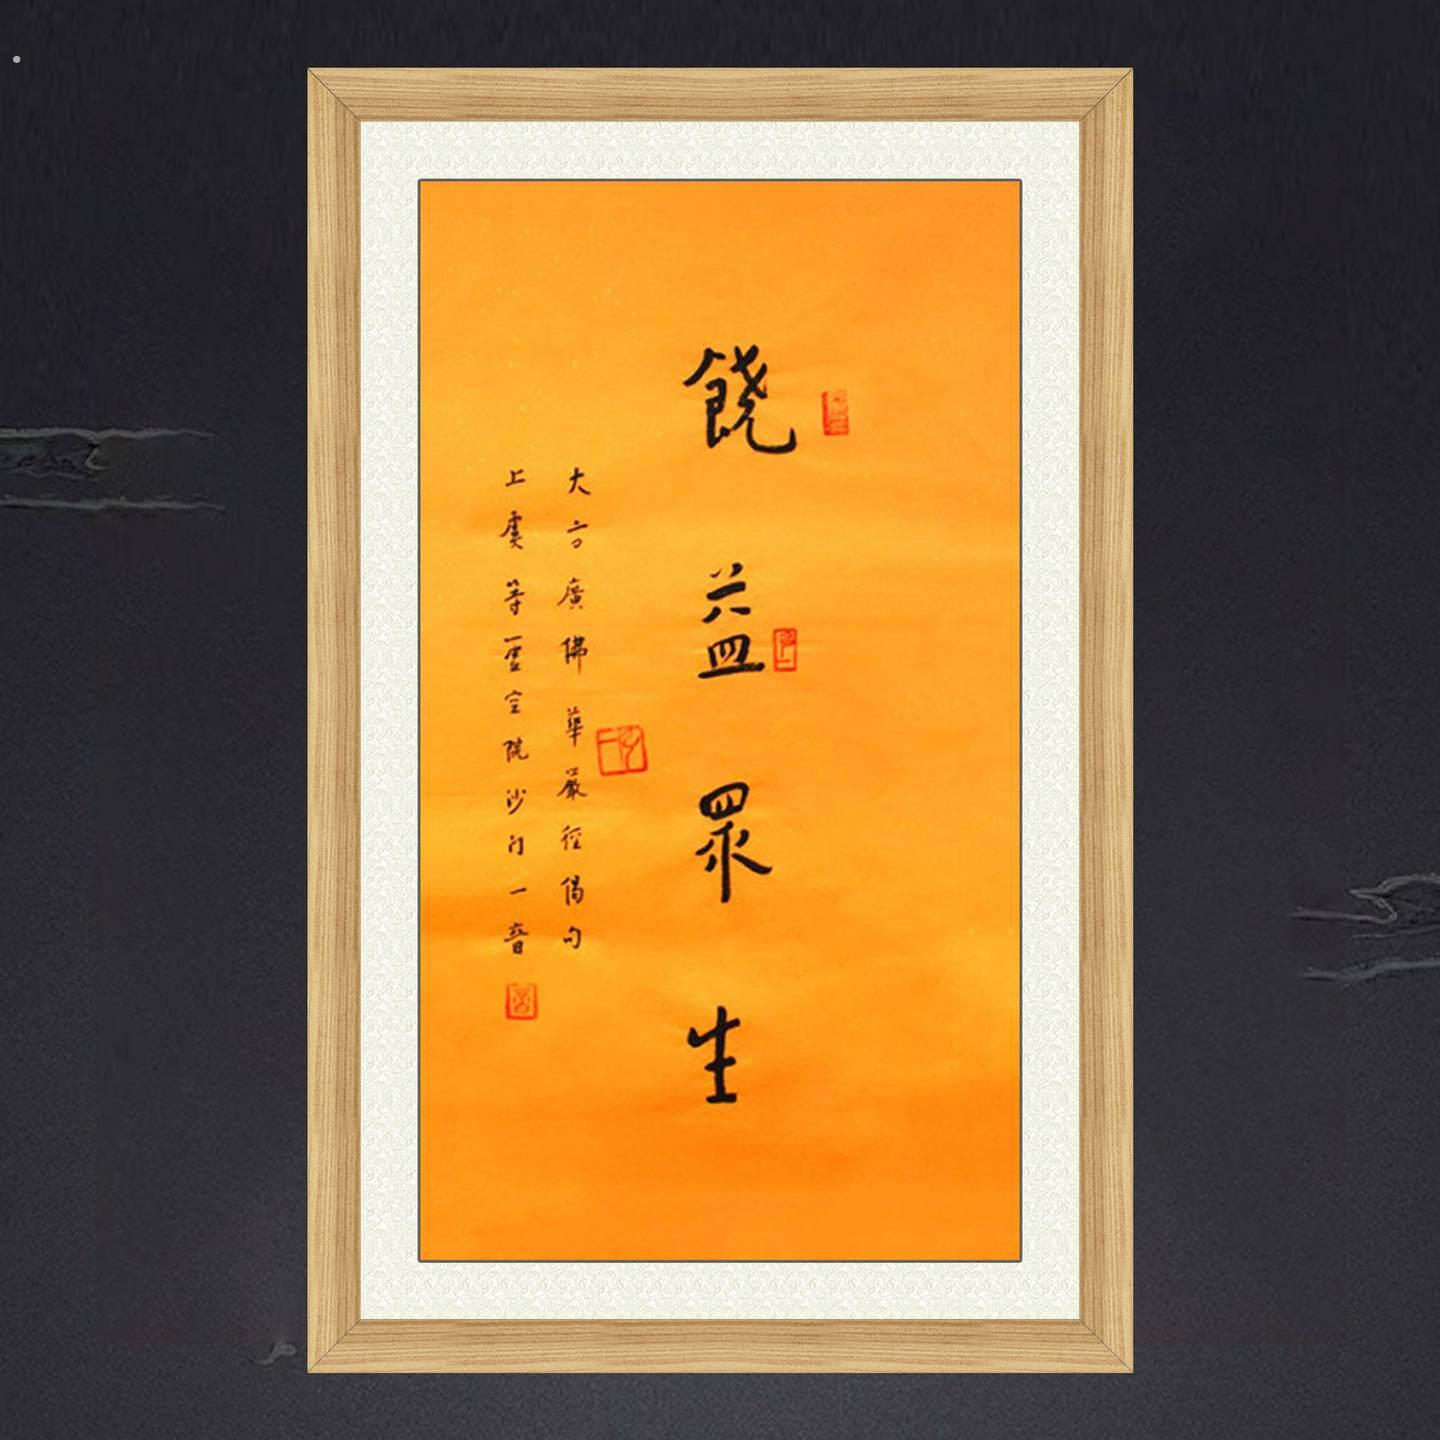 饒益眾生
大方廣佛華嚴經偈句
上虞等雲空院沙门一音